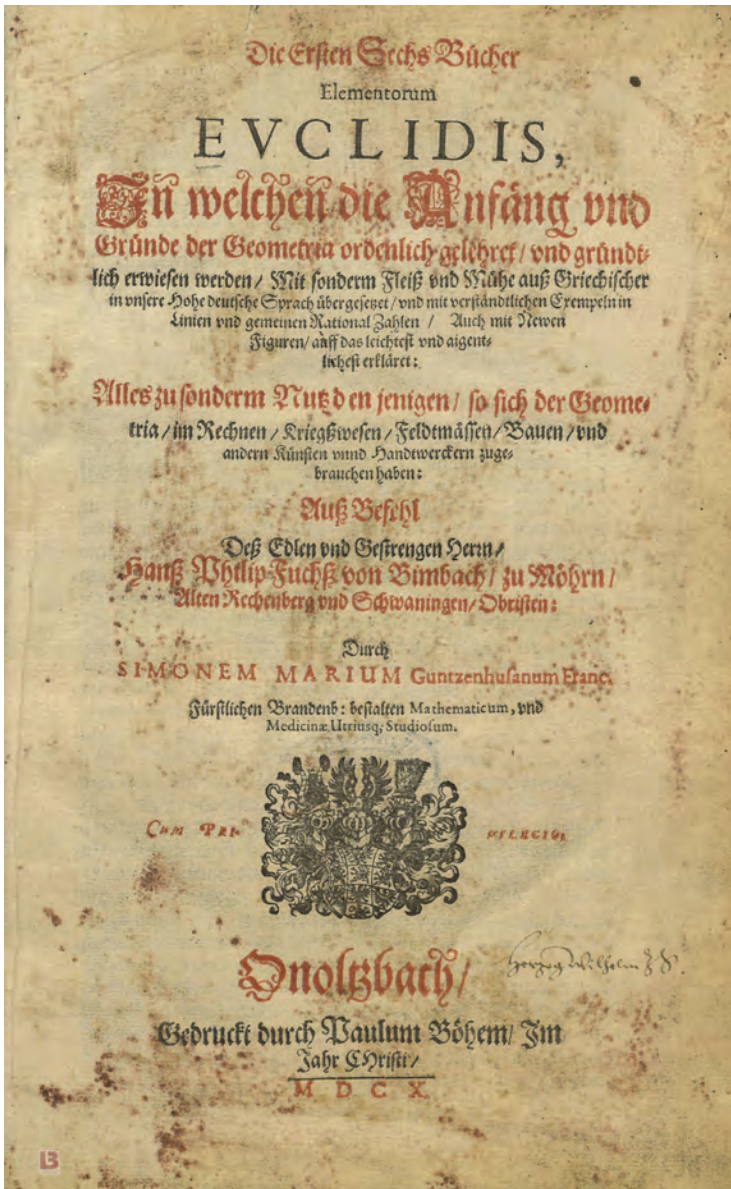 Die Ersten Sechs Bücher
Elementorum
EVCLIDIS,
In welchen die Anfäng vnd
Gründe der Geometria ordenlich gelehret / vnd gründt-
lich erwiesen werden / Mit sonderm Fleiß vnd Mühe auß Griechischer
in vnsere Hohe deutsche Sprach übergesetzet / vnd mit verständtlichen Exempeln in
Linien vnd gemeinen Rational Zahlen / Auch mit Newen
Figuren / auff das leichtest vnd aigent-
lichest erkläret :
Alles zu sonderm Nutz den jenigen / so sich der Geome-
tria / im Rechnen / Kriegßwesen / Feldtmässen / Bauen / vnd
andern Künsten vnnd Handtwerckern zuge-
brauchen haben :
Auß Befehl
Deß Edlen vnd Gestrengen Herrn /
Hanß Philip Fuchß von Bimbach / zu Möhrn /
Alten Rechenberg vnd Schwaningen / Obristen :
Durch
SIMONEM MARIUM Guntzenhusanum Franc.
Fürstlichen Brandenb : bestalten Mathematicum, vnd
Medicinæ Utriusq; Studiosum.
CUM PRI- VILEGIO,
Herzog Wilhelm
Onoltzbach /
Gedruckt durch Paulum Böhem / Im
Jahr CHristi /
M D C X